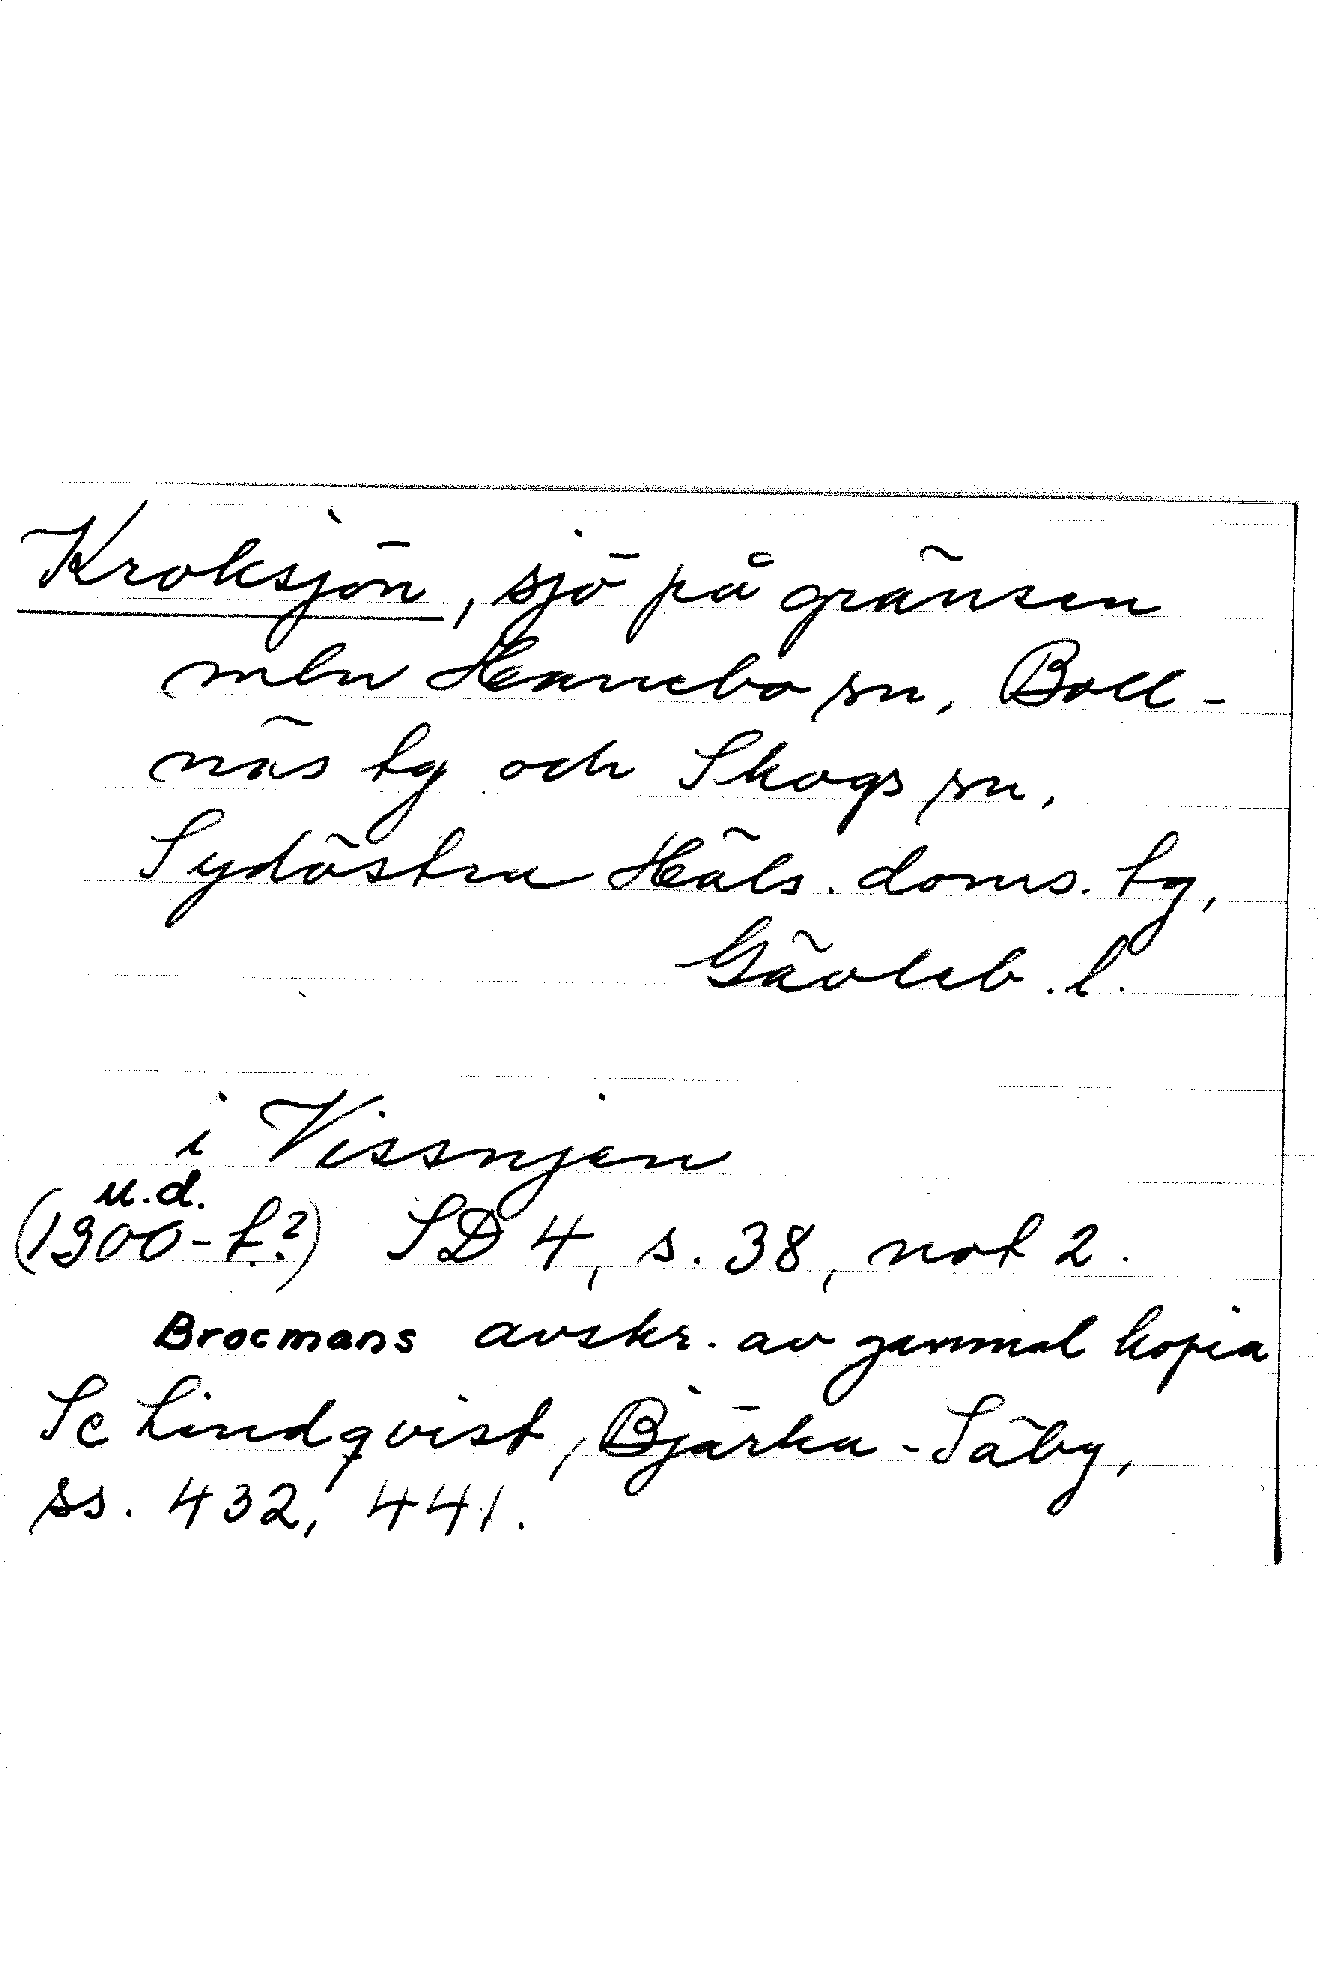 Kroksjön, sjö på gränsen
mln Hanebo sn, Boll-
näs tg och Skogs sn,
Sydöstra Häls. doms. tg,
Gävleb. l.
i Vissnjen
u.d.
(1300-t.?) SD 4, s. 38, not 2.
Brocmans avskr. av gammal kopia
Se Lindqvist, Bjärka-Säby,
ss. 432, 441.